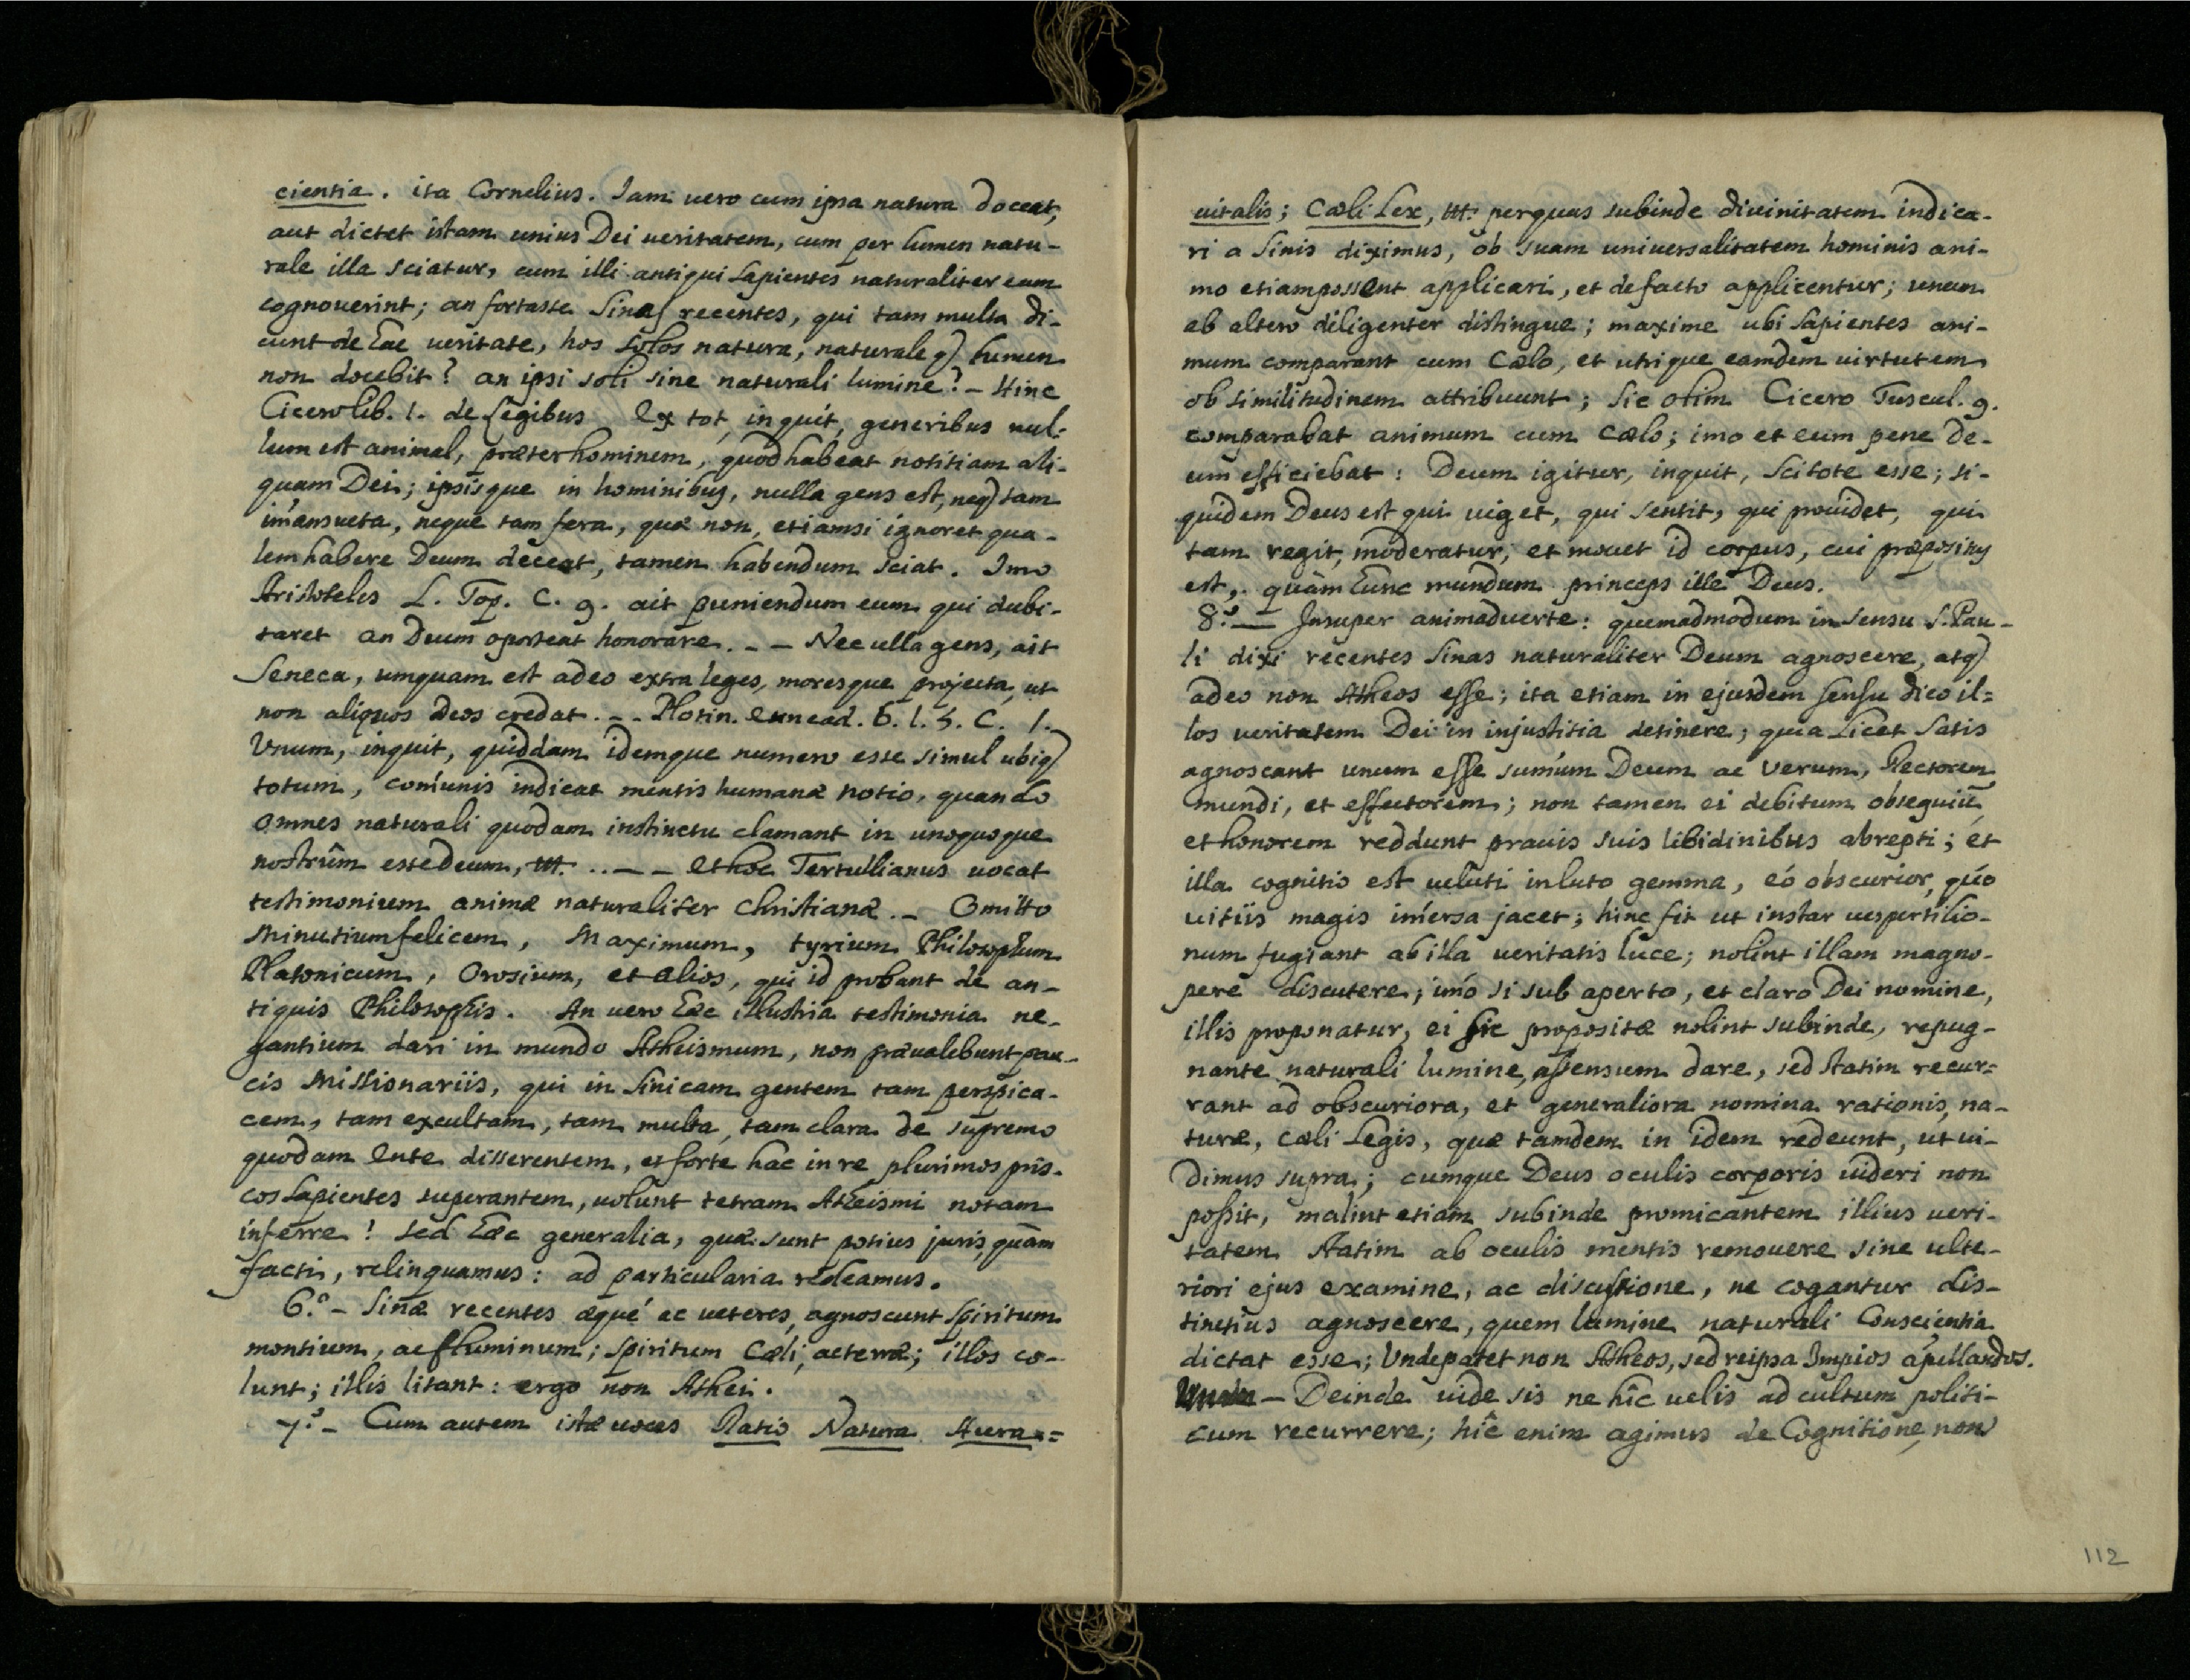 cientia. ita Cornelius. Iam vero cum ipsa natura doceat,
aut dictet istam unius Dei ueritatem, cum per lumen natu-
rale illa sciatur, cum illi antiqui sapientes naturaliter eam
cognouerint; an fortasse Sinas recentes, qui tam multa di-
cunt de hac ueritate, hos solos natura, naturaleq) lumen
non docebit? an ipsi soli sine naturali lumine? – Hinc
Cicero lib. 1. de Legibus Ex tot, inquit, generibus nul-
lum est animal, præter hominem, quod habeat notitiam ali-
quam Dei; ipsisque in hominibus, nulla gens est, neq) tam
im̃ansueta, neque tam fera, quæ non, etiamsi ignoret qua-
lem habere Deum deceat, tamen habendum sciat. Imo
Aristoteles L. Top. C. 9. ait puniendum eum qui dubi-
taret an Deum oporteat honorare. – – Nec ulla gens, ait
Seneca, umquam est adeo extra leges, moresque projecta, ut
non aliquos deos credat. – . Plotin. Ennead. 6. l. 5. C. 1.
Vnum, inquit, quiddam idemque numero esse simul ubiq)
totum, com̃unis indicat mentis humanæ notio, quando
omnes naturali quodam instinctu clamant in unoquoque
nostrûm esse deum, ttt. .. – – Et hoc Tertullianus uocat
testimonium animæ naturaliter Christianæ. – Omitto
Minutium felicem, Maximum, tyrium Philosophum
Platonicum, Orosium, et alios, qui id probant de an-
tiquis Philosophis. An uero hæc illustria testimonia ne-
gantium dari in mundo Atheismum, non præualebunt pau-
cis Missionariis, qui in Sinicam gentem tam perspica-
cem, tam excultam, tam multa, tam clara de supremo
quodam Ente disserentem, et forte hac in re plurimos pris-
cos sapientes superantem, uolunt tetram Atheismi notam
inferre! sed hæc generalia, quæ sunt potius juris quàm
facti, relinquamus: ad particularia redeamus.
6.º – Sinæ recentes æquè ac ueteres, agnoscunt spiritum
montium, ac fluminum; spiritum Cæli, ac terræ; illos co-
lunt; illis litant: ergo non Athei.
7.º – Cum autem istæ uoces Ratio Natura Aura=
uitalis; Cæli Lex, ttt. per quas subinde diuinitatem indica-
ri a Sinis diximus, ob suam uniuersalitatem hominis ani-
mo etiam possent applicari, et de facto applicentur; unum
ab altero diligenter distingue; maxime ubi sapientes ani-
mum comparant cum Cælo, et utrique eamdem uirtutem
ob similitudinem attribuunt; sic olim Cicero Tuscul. 9.
comparabat animum cum Cælo; imo et eum pene de-
um efficiebat: Deum igitur, inquit, scitote esse; si-
quidem Deus est qui uiget, qui sentit, qui prouidet, qui
tam regit, moderatur, et mouet id corpus, cui præpositus
est, quàm hunc mundum princeps ille Deus.
8.º — Insuper animaduerte: quemadmodum in sensu S. Pau-
li dixi recentes Sinas naturaliter Deum agnoscere, atq)
adeo non Atheos esse; ita etiam in ejusdem sensu dico il=
los ueritatem Dei in injustitia detinere; quia licet satis
agnoscant unum esse sum̃um Deum ac verum, Rectorem
mundi, et effectorem; non tamen ei debitum obsequiũ
et honorem reddunt prauis suis libidinibus abrepti; et
illa cognitio est ueluti in luto gemma, eó obscurior, quó
uitiis magis im̃ersa jacet; hinc fit ut instar uespertilio-
num fugiant ab illa ueritatis luce; nolint illam magno-
pere discutere; imó si sub aperto, et claro Dei nomine,
illis proponatur, ei sic propositæ nolint subinde, repug-
nante naturali lumine, assensum dare, sed statim recur=
rant ad obscuriora, et generaliora nomina rationis, na-
turæ, cæli Legis, quæ tamdem in idem redeunt, ut ui-
dimus supra; cumque Deus oculis corporis uideri non
possit, malint etiam subinde promicantem illius ueri-
tatem statim ab oculis mentis remouere sine ulte-
riori ejus examine, ac discussione, ne cogantur dis-
tinctius agnoscere, quem lumine naturali Conscientia
dictat esse; Vnde patet non Atheos, sed reipsa Impios ap̃ellandos.
– Deinde uide sis ne hîc uelis ad cultum politi-
cum recurrere; hîc enim agimus de Cognitione, non
112